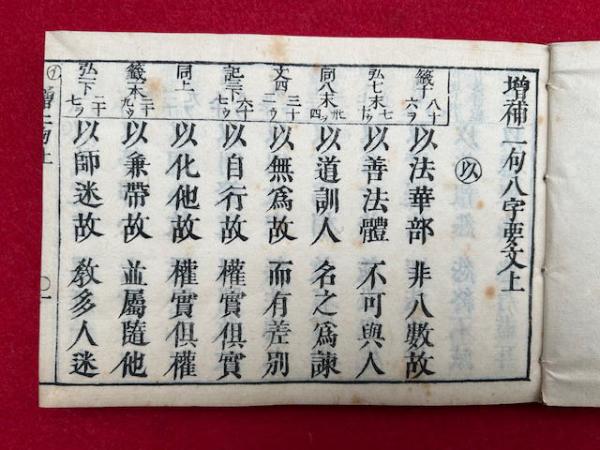 增補二句八字要文上
以
籤 八十六ヲ 以法華部 非八數故
弘七末 七ウ 以善法體 不可與人
同八末 四ヲ 以道訓人 名之爲諫
文四 三十ウ 以無爲故 而有差別
記三下 六十七ウ 以自行故 權實俱實
同上 以化他故 權實俱權
籤本 二十九ウ 以兼帶故 並屬隨他
弘一下 二十七ウ 以師迷故 敎多人迷
增二句上 一